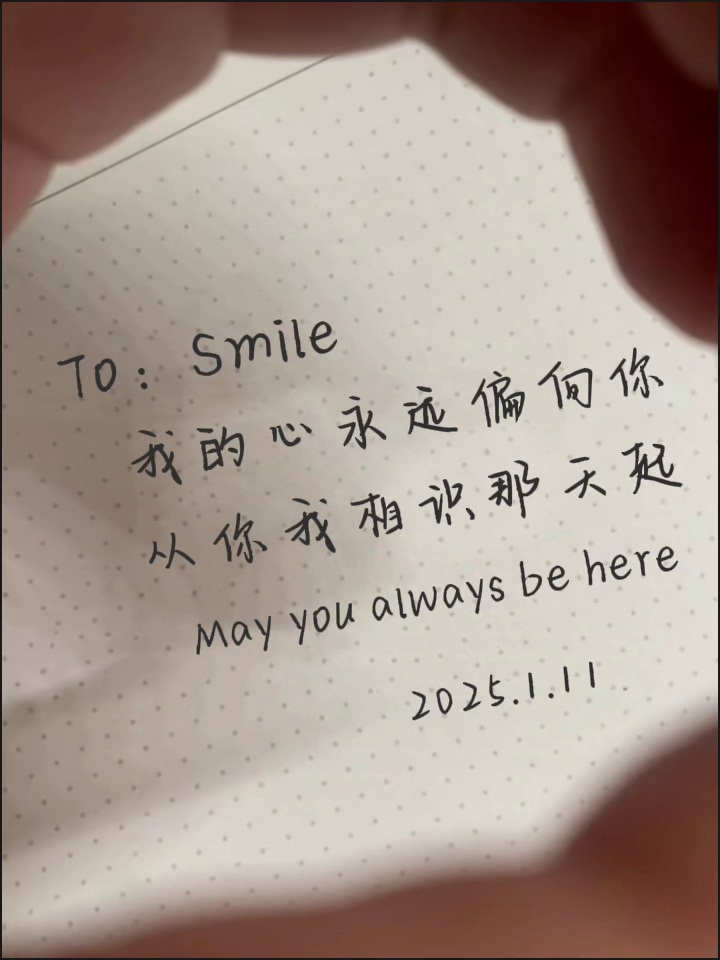 To: Smile
我的心永远偏向你
从你我相识那天起
May you always be here
2025.1.11